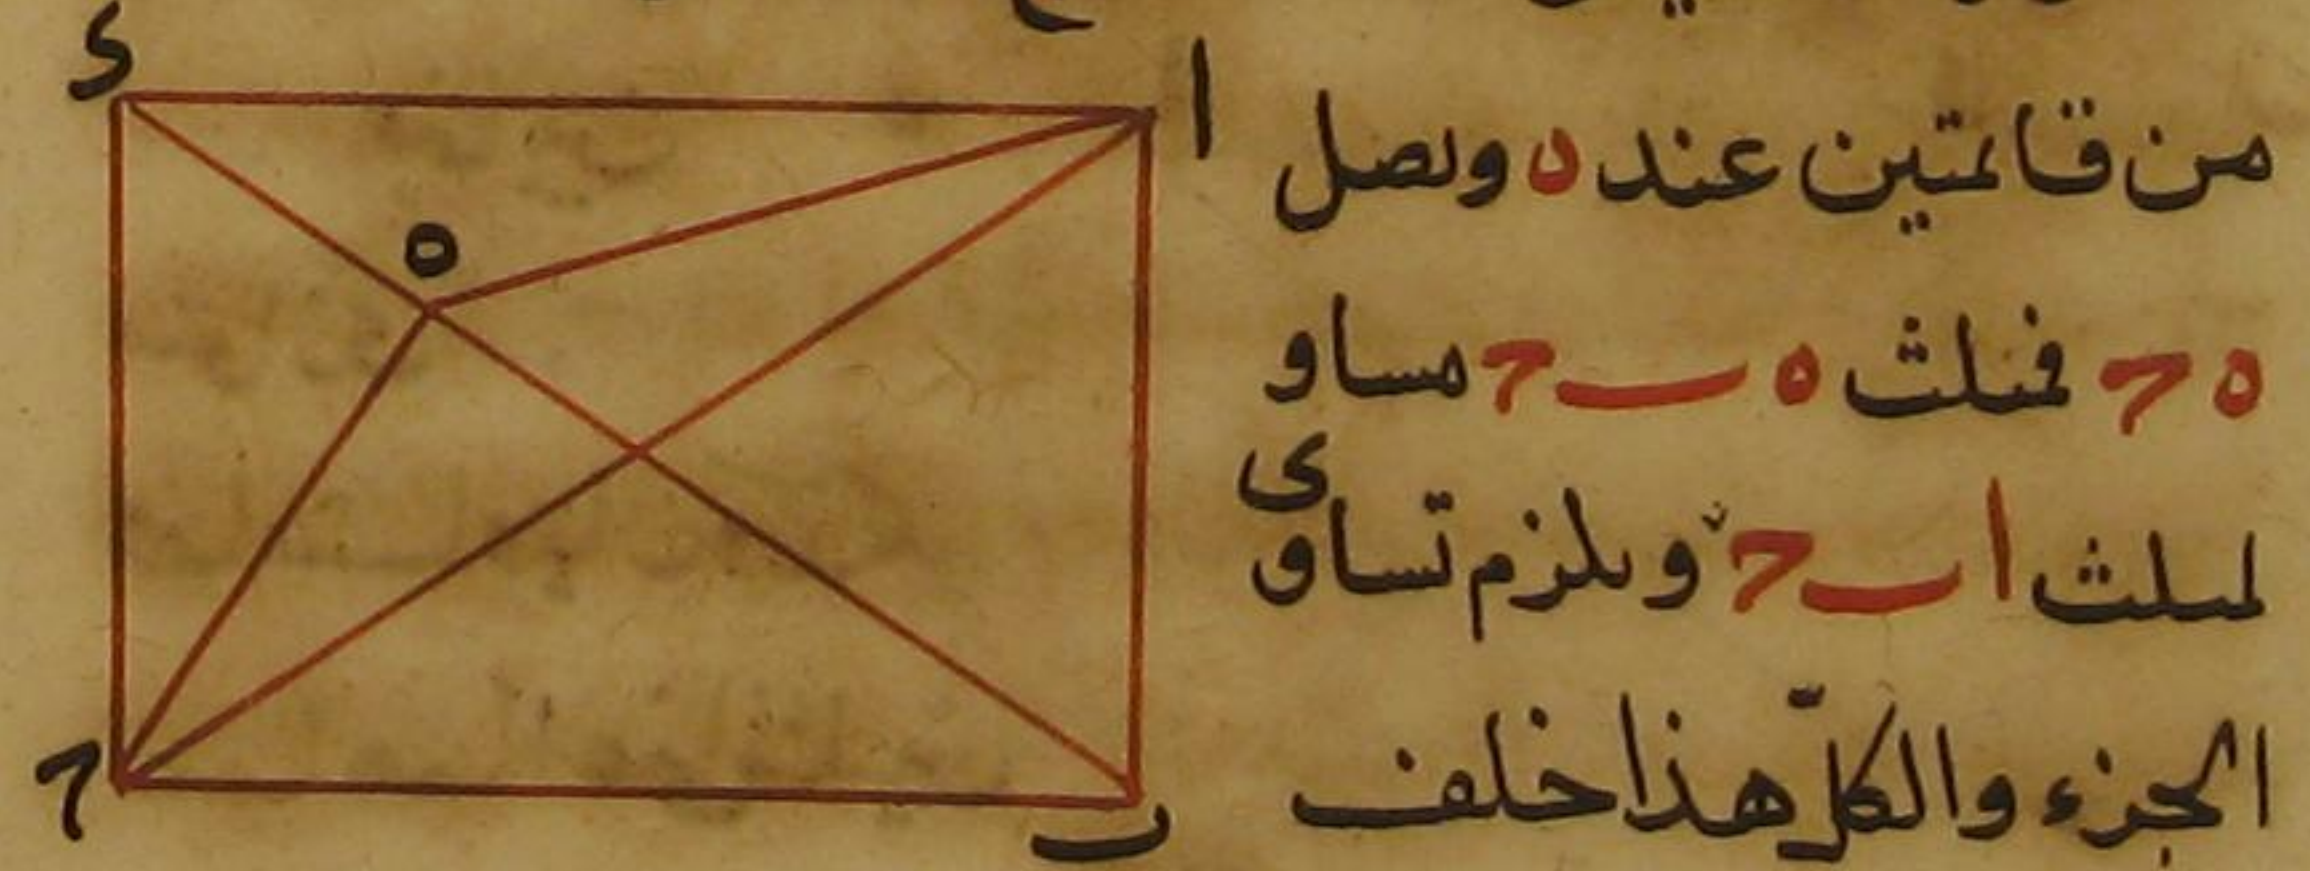 من قائمتين عند ه ونصل
ه ح فمثلث ه ب ح مساو
لمثلث ا ب ح ويلزم تساوى
الجزء والكلّ هذا خلف
د
ا
ه
ح
ب